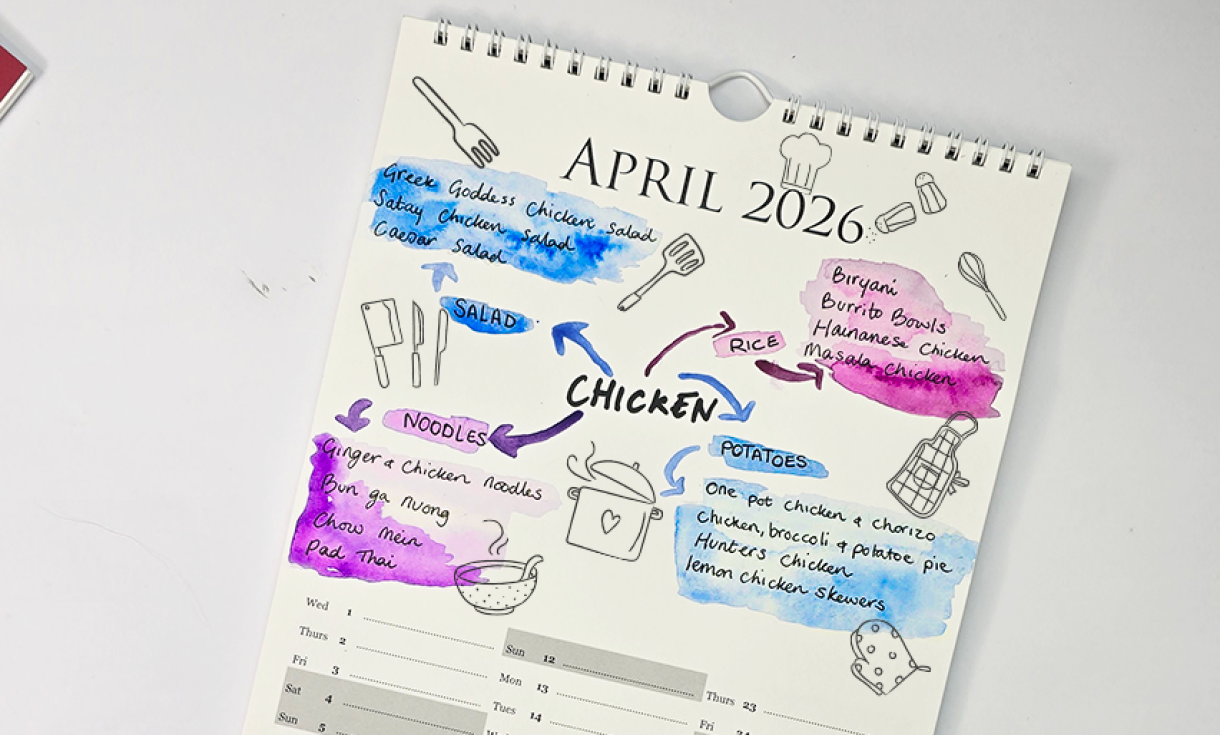 APRIL 2026
Greek Goddess Chicken Salad
Satay Chicken Salad
Caesar Salad
SALAD
CHICKEN
RICE
Biryani
Burrito Bowls
Hainanese Chicken
Masala Chicken
NOODLES
Ginger & Chicken noodles
Bun ga nuong
Chow mein
Pad Thai
POTATOES
One pot chicken & chorizo
Chicken, broccoli & potatoe pie
Hunters Chicken
lemon chicken skewers
Wed 1
Thurs 2
Fri 3
Sat 4
Sun 5
Sun 12
Mon 13
Tues 14
Thurs 23
Fri